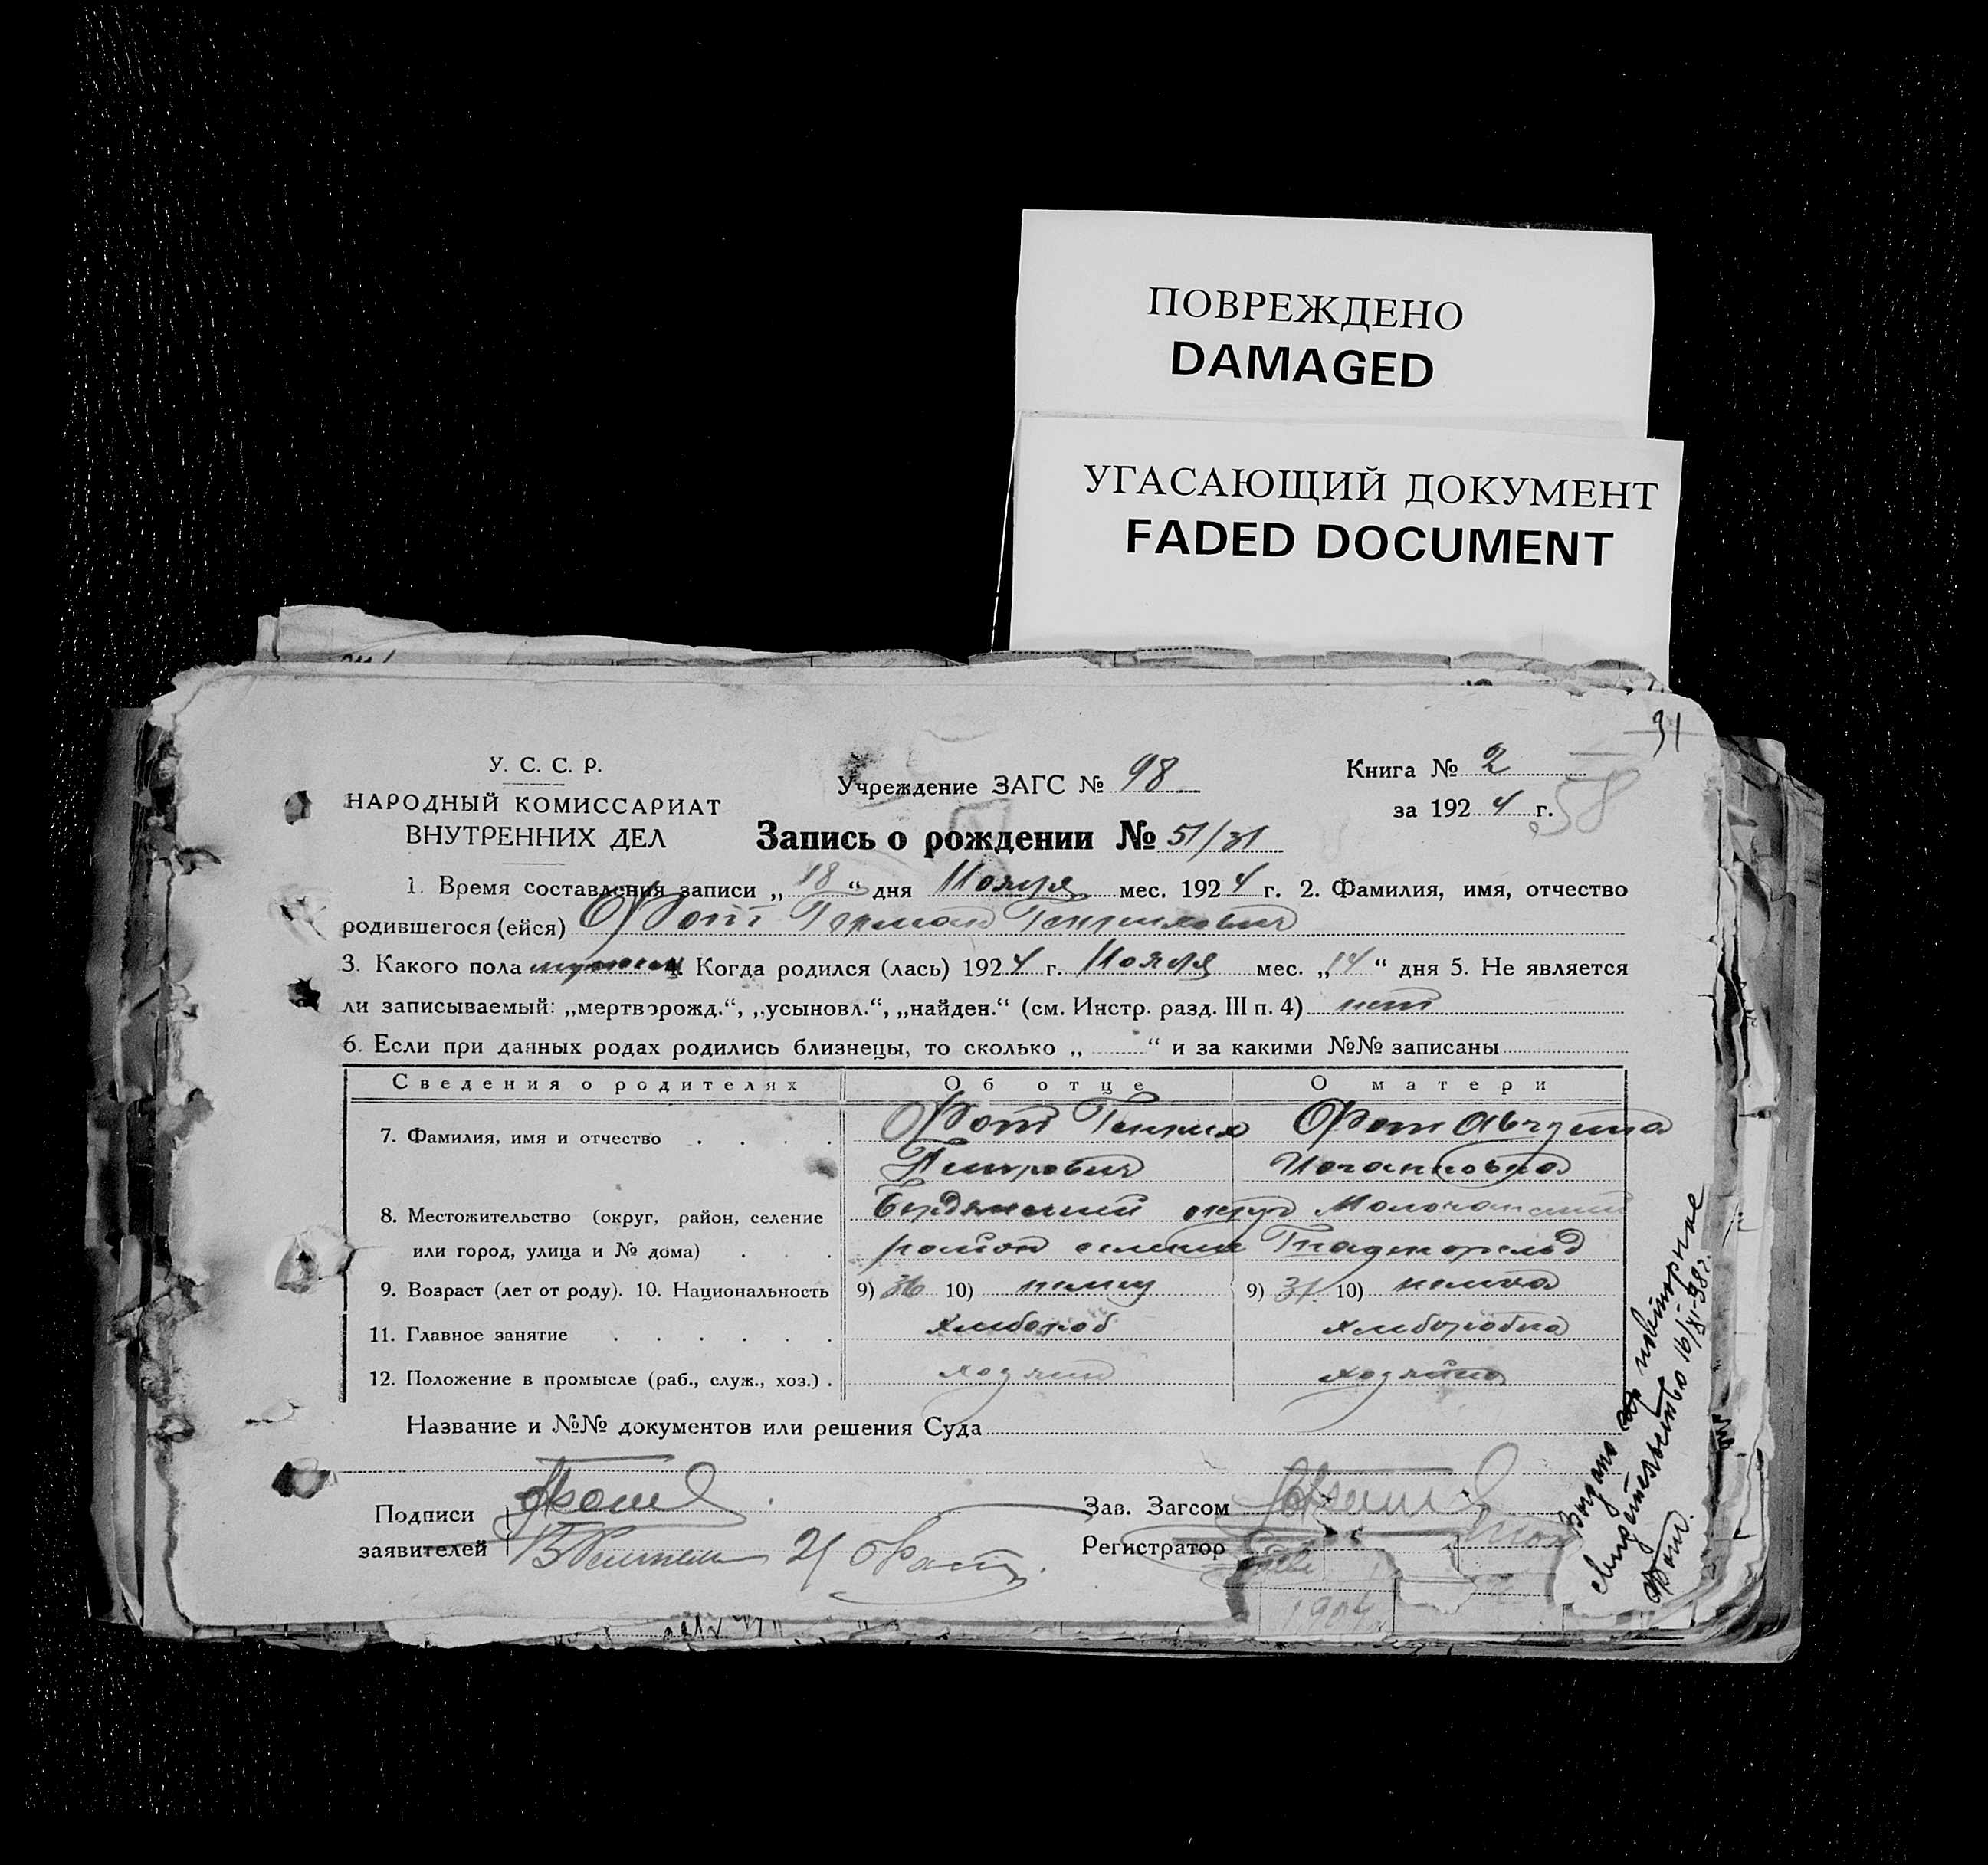 ПОВРЕЖДЕНО
DAMAGED
УГАСАЮЩИЙ ДОКУМЕНТ
FADED DOCUMENT
31
У. С. С. Р.
НАРОДНЫЙ КОМИССАРИАТ
ВНУТРЕННИХ ДЕЛ
Учреждение ЗАГС № 98
Книга № 2
за 1924 г.
58
Запись о рождении № 51/31
1. Время составления записи „18“ дня Ноября мес. 1924 г. 2. Фамилия, имя, отчество
родившегося (ейся) Фот Герман Генрихович
3. Какого пола мужски 4. Когда родился (лась) 1924 г. Ноября мес. „14“ дня 5. Не является
ли записываемый: „мертворожд.“, „усыновл.“, „найден.“ (см. Инстр. разд. III п. 4) нет
6. Если при данных родах родились близнецы, то сколько „ “ и за какими №№ записаны
Сведения о родителях Об отце О матери
7. Фамилия, имя и отчество Фот Генрих Фот Августа
Петрович Иогановна
8. Местожительство (округ, район, селение Бердянский округ Молочанский
или город, улица и № дома) район селение Гнаденфельд
9. Возраст (лет от роду). 10. Национальность 9) 36 10) немец 9) 31 10) немка
11. Главное занятие хлебороб хлеборобка
12. Положение в промысле (раб., служ., хоз.) хозяин хозяйка
Название и №№ документов или решения Суда
Подписи Фот
заявителей
Зав. Загсом
Регистратор
Выдано повторное
свидетельство 16/XI-38г.